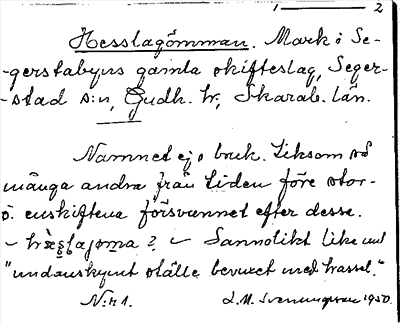 1 ——— 2
Hesslagömman. Mark i Se-
-gerstabyns gamla skifteslag, Seger-
-stad s:n, Gudh. hr, Skarab. län.
Namnet ej i bruk. Liksom så
många andra från tiden före stor-
o. enskiftena försvunnet efter dessa.
Sannolikt lika med
"undanskymt ställe bevuxet med hassel."
N:r 1. L. M. Svenungsson 1950.